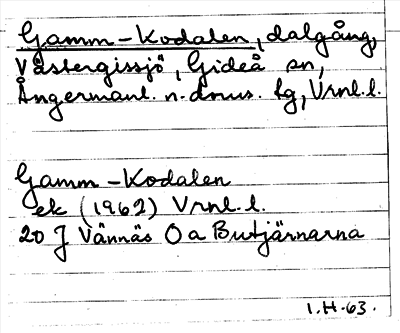 Gamm-Kodalen, dalgång,
Västergissjö, Gideå sn,
Ångermanl. n. doms. lg, Vrnl.l.
Gamm-Kodalen
ek (1962) Vrnl.l.
20 J Vännäs O a Butjärnarna
1.H.63.